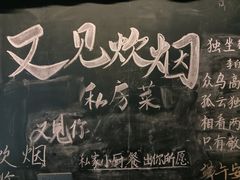 又见炊烟
私房菜
又见你!
炊烟
私家小厨餐 出你所愿
独坐
众鸟高
孤云独
相看两
只有敬